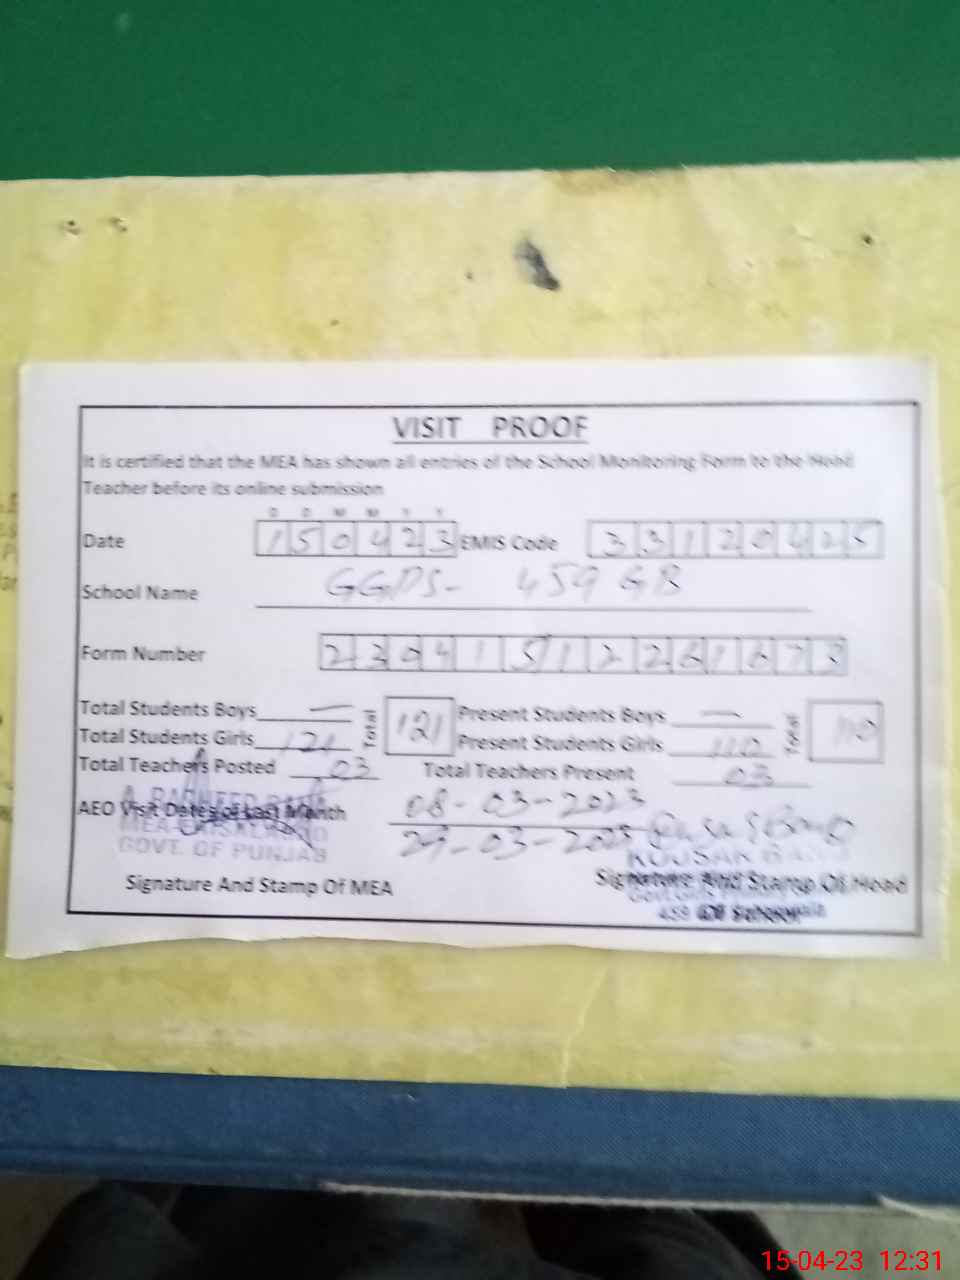 VISIT PROOF
It is certified that the MEA has shown all entries of the School Monitoring Form to the Head
Teacher before its online submission
D D M M Y Y
Date 150423 EMIS Code 33120425
School Name GGPS- 459 GB
Form Number
Total Students Boys — Total 121 Present Students Boys — Total 110
Total Students Girls 121 Present Students Girls 110
Total Teachers Posted 03 Total Teachers Present 03
AEO Visit Dates of Last Month 08-03-2023
29-03-2023
GOVT. OF PUNJAB
Signature And Stamp Of MEA
Signature And Stamp Of Head
459
15-04-23 12:31